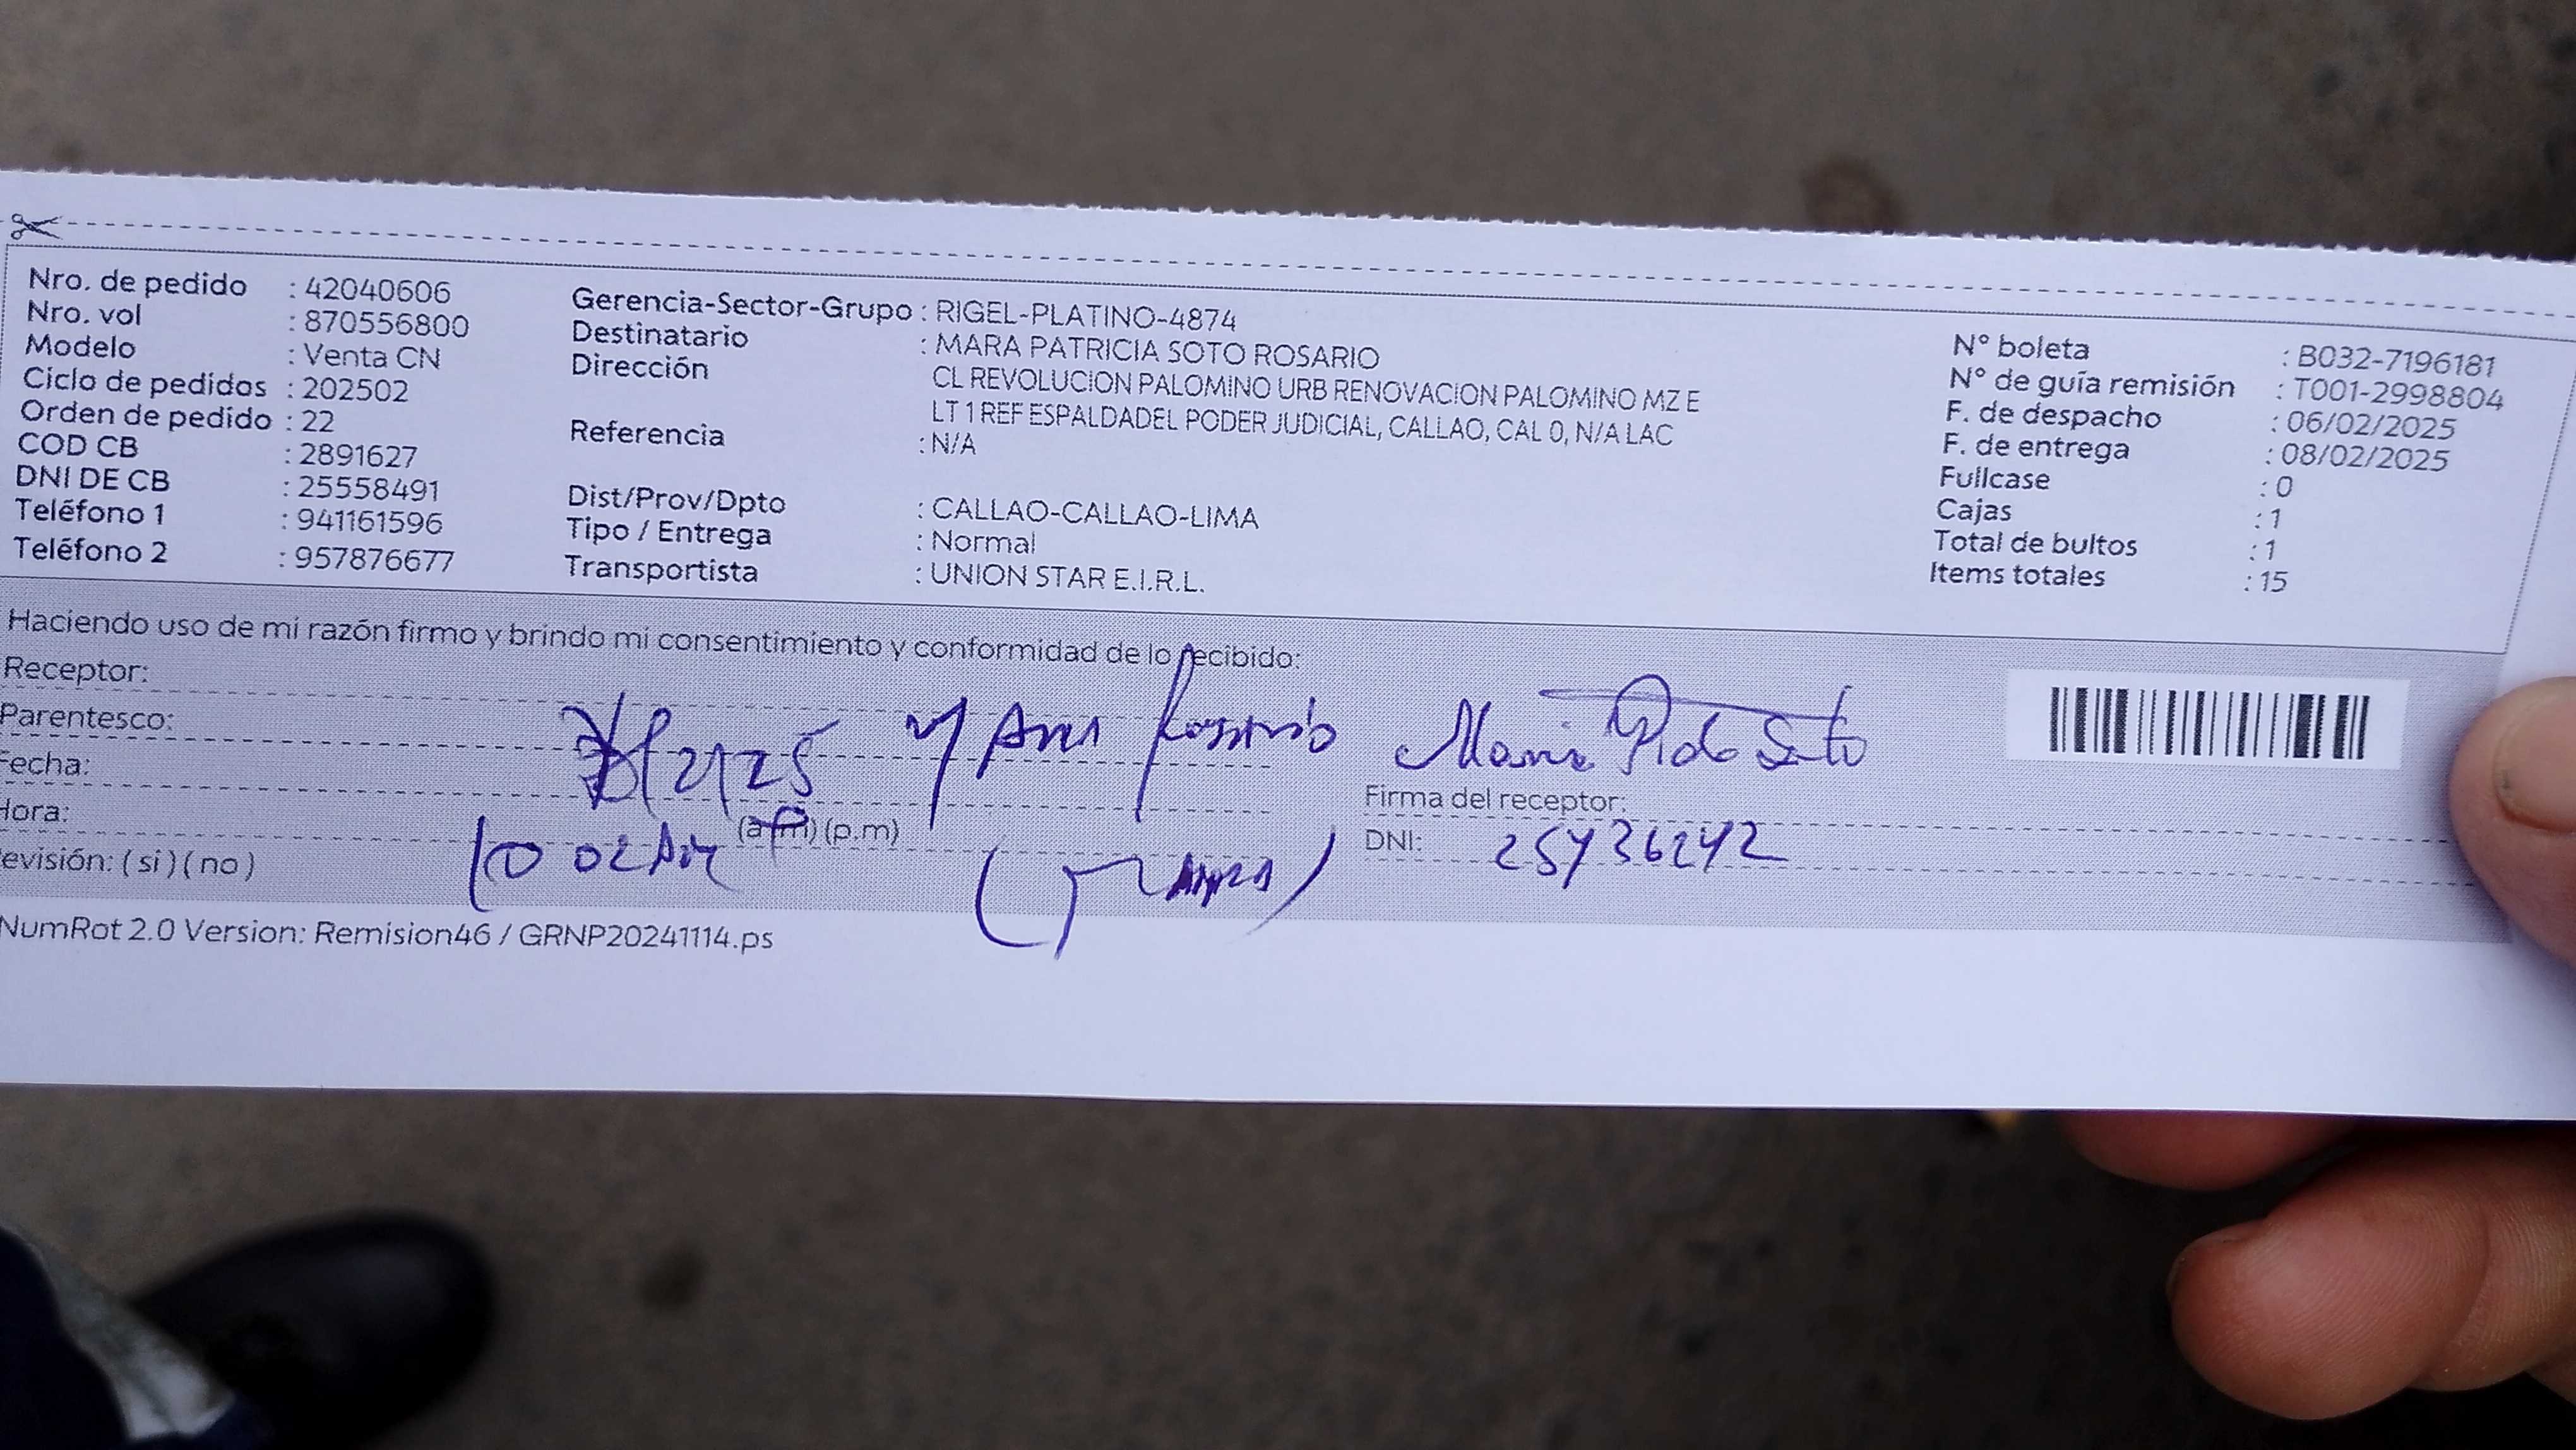 Nro. de pedido : 42040606
Nro. vol : 870556800
Modelo : Venta CN
Ciclo de pedidos : 202502
Orden de pedido : 22
COD CB : 2891627
DNI DE CB : 25558491
Teléfono 1 : 941161596
Teléfono 2 : 957876677
Gerencia-Sector-Grupo : RIGEL-PLATINO-4874
Destinatario : MARA PATRICIA SOTO ROSARIO
Dirección CL REVOLUCION PALOMINO URB RENOVACION PALOMINO MZ E
LT 1 REF ESPALDADEL PODER JUDICIAL, CALLAO, CAL 0, N/A LAC
Referencia : N/A
Dist/Prov/Dpto : CALLAO-CALLAO-LIMA
Tipo / Entrega : Normal
Transportista : UNION STAR E.I.R.L.
N° boleta : B032-7196181
N° de guía remisión : T001-2998804
F. de despacho : 06/02/2025
F. de entrega : 08/02/2025
Fullcase : 0
Cajas : 1
Total de bultos : 1
Items totales : 15
Haciendo uso de mi razón firmo y brindo mi consentimiento y conformidad de lo recibido:
Receptor:
Parentesco:
Fecha:
Hora: (a.m) (p.m)
evisión: ( si ) ( no )
Firma del receptor:
DNI:
NumRot 2.0 Version: Remision46 / GRNP20241114.ps